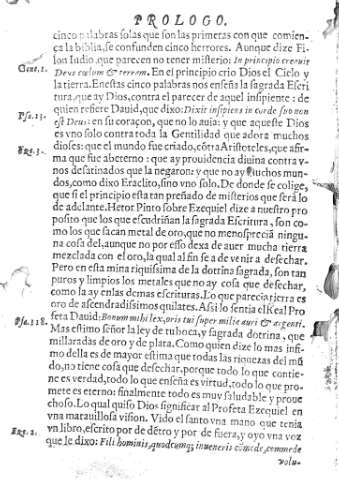 PROLOGO.
cinco palabras solas que son las primeras con que comien-
ça la biblia, se confunden cinco herrores. Aunque dize Fi-
lon Iudio, que parecen no tener misterio: In principio creauit
Gene.1. Deus cœlum & terram. En el principio crio Dios el Cielo y
la tierra. Enestas cinco palabras nos enseña la sagrada Escri
tura, que ay Dios, contra el parecer de aquel insipiente: de
quien refiere Dauid, que dixo: Dixit insipiens in corde suo non
Psa.13. est Deus: en su coraçon, que no lo auia: y que aqueste Dios
es vno solo contra toda la Gentilidad que adora muchos
dioses: que el mundo fue criado, cõtra Aristoteles, que afir
ma que fue abeterno: que ay prouidencia diuina contra v-
nos desatinados que la negaron: y que no ay muchos mun-
dos, como dixo Eraclito, sino vno solo. De donde se colige,
que si el principio esta tan preñado de misterios que será lo
de adelante. Hetor Pinto sobre Ezequiel dize a nuestro pro
posito que los que escudriñan la sagrada Escritura, son co-
mo los que sacan metal de oro, que no menosprecia ningu-
na cosa del, aunque no por esso dexa de auer mucha tierra
mezclada con el oro, la qual al fin se a de venir a desechar.
Pero en esta mina riquissima de la dotrina sagrada, son tan
puros y limpios los metales que no ay cosa que desechar,
como la ay en las demas escrituras. Lo que parecia tierra es
oro de ascendradissimos quilates. Assi lo sentia el Real Pro
feta Dauid: Bonum mihi lex, oris tui super milia auri & argenti.
Psa.118. Mas estimo señor la ley de tu boca, y sagrada dotrina, que
millaradas de oro y de plata. Como quien dize lo mas infi
mo della es de mayor estima que todas las riquezas del mũ
do, no tiene cosa que desechar, porque todo lo que contie-
ne es verdad, todo lo que enseña es virtud, todo lo que pro
mete es eterno: finalmente todo es muy saludable y proue
choso. Lo qual quiso Dios significar al Profeta Ezequiel en
vna marauillosa vision. Vido el santo vna mano que tenia
vn libro, escrito por de dẽtro y por de fuera, y oyo vna voz
Eze.2. que le dixo: Fili hominis, quodcumq; inueneris cõmede, commede
volu-